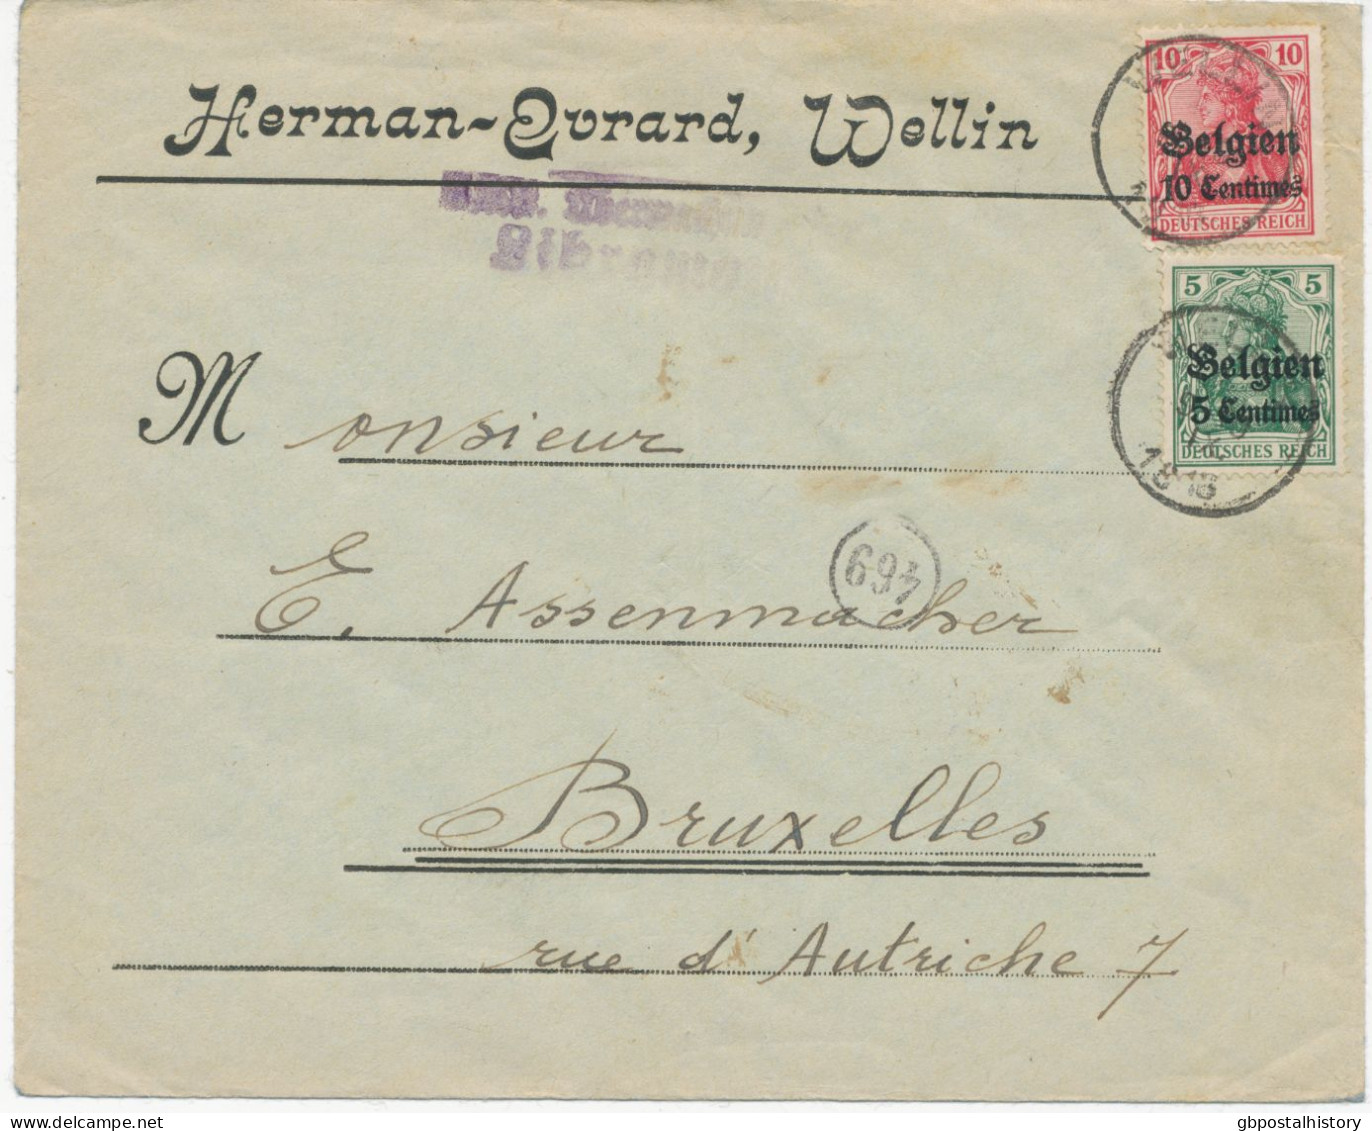 Herman-Qvrard, Wellin
10 10
Belgien
10 Centimes
DEUTSCHES REICH
5 5
Belgien
5 Centimes
DEUTSCHES REICH
Monsieur
469
E. Assenmacher
Bruxelles
rue d'Autriche 7
gbpostalhistory